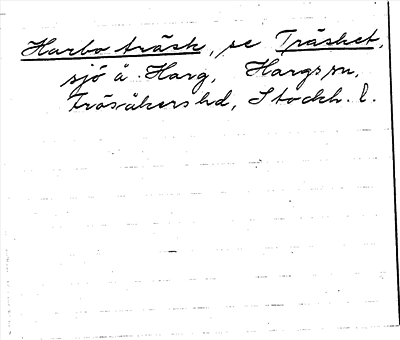 Harbo träsk, se Träsket,
sjö å Harg, Hargs sn,
Frösåkers hd, Stockh. l.